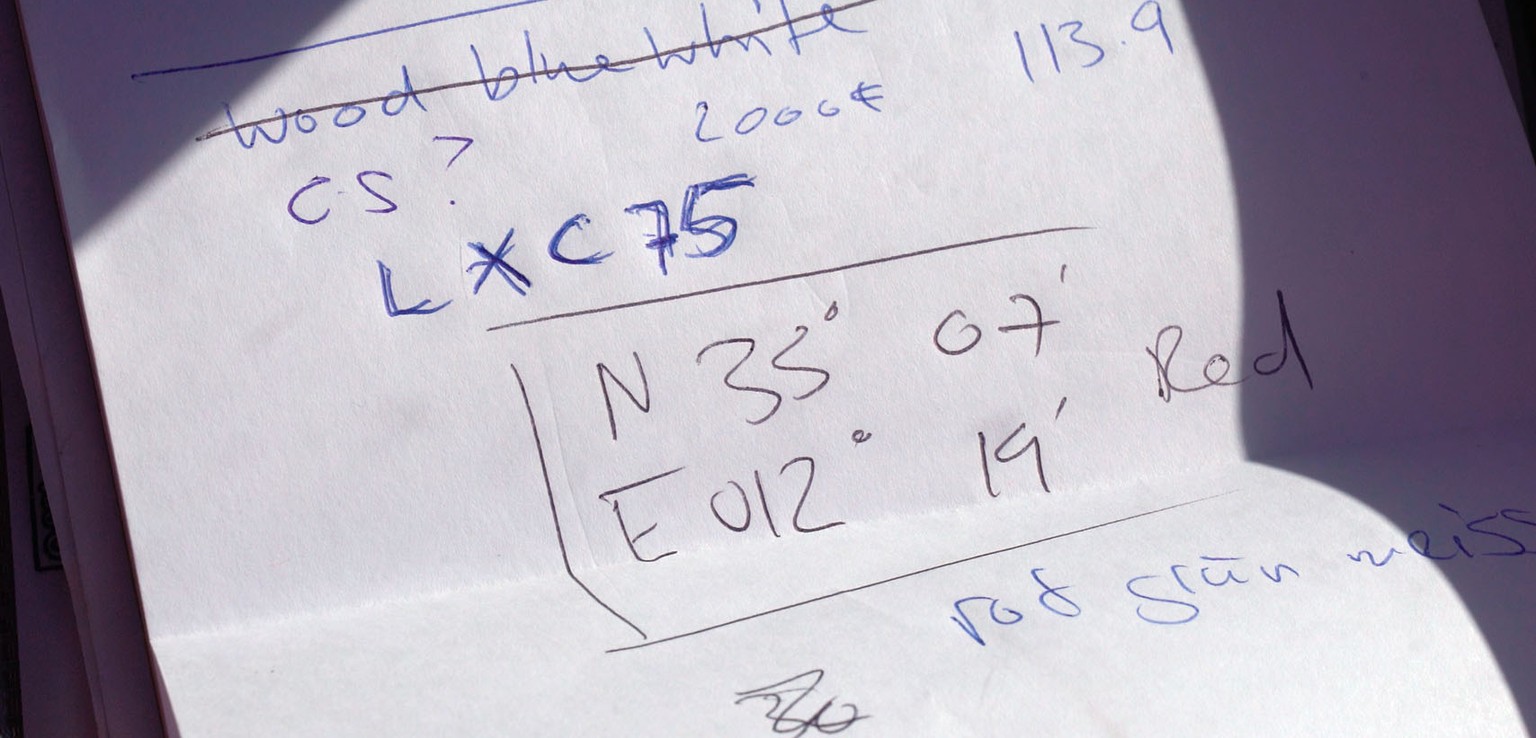 wood blue white 113.9
2000€
CS?
LXC75
N 33° 07'
Red
E 012° 19'
rot grün weiss